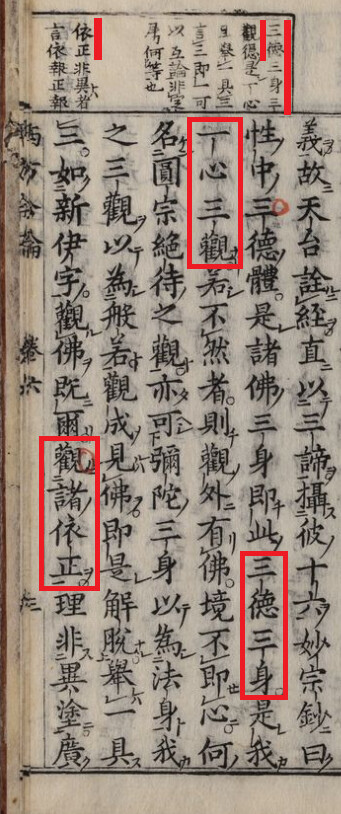 三德三身三
觀總是一心
且舉一具三
言三即一可
以互論非定
屬何等也
依正非異者
言依報正報
義故天台詮經直以三諦攝彼十六妙宗鈔曰
性中三德體是諸佛三身即此三德三身是我
一心三觀若不然者則觀外有佛境不即心何
名圓宗絶待之觀亦可彌陀三身以為法身我
之三觀以為般若觀成見佛即是解脫舉一具
三如新伊字觀佛既爾觀諸依正理非異塗廣
方合論 卷六